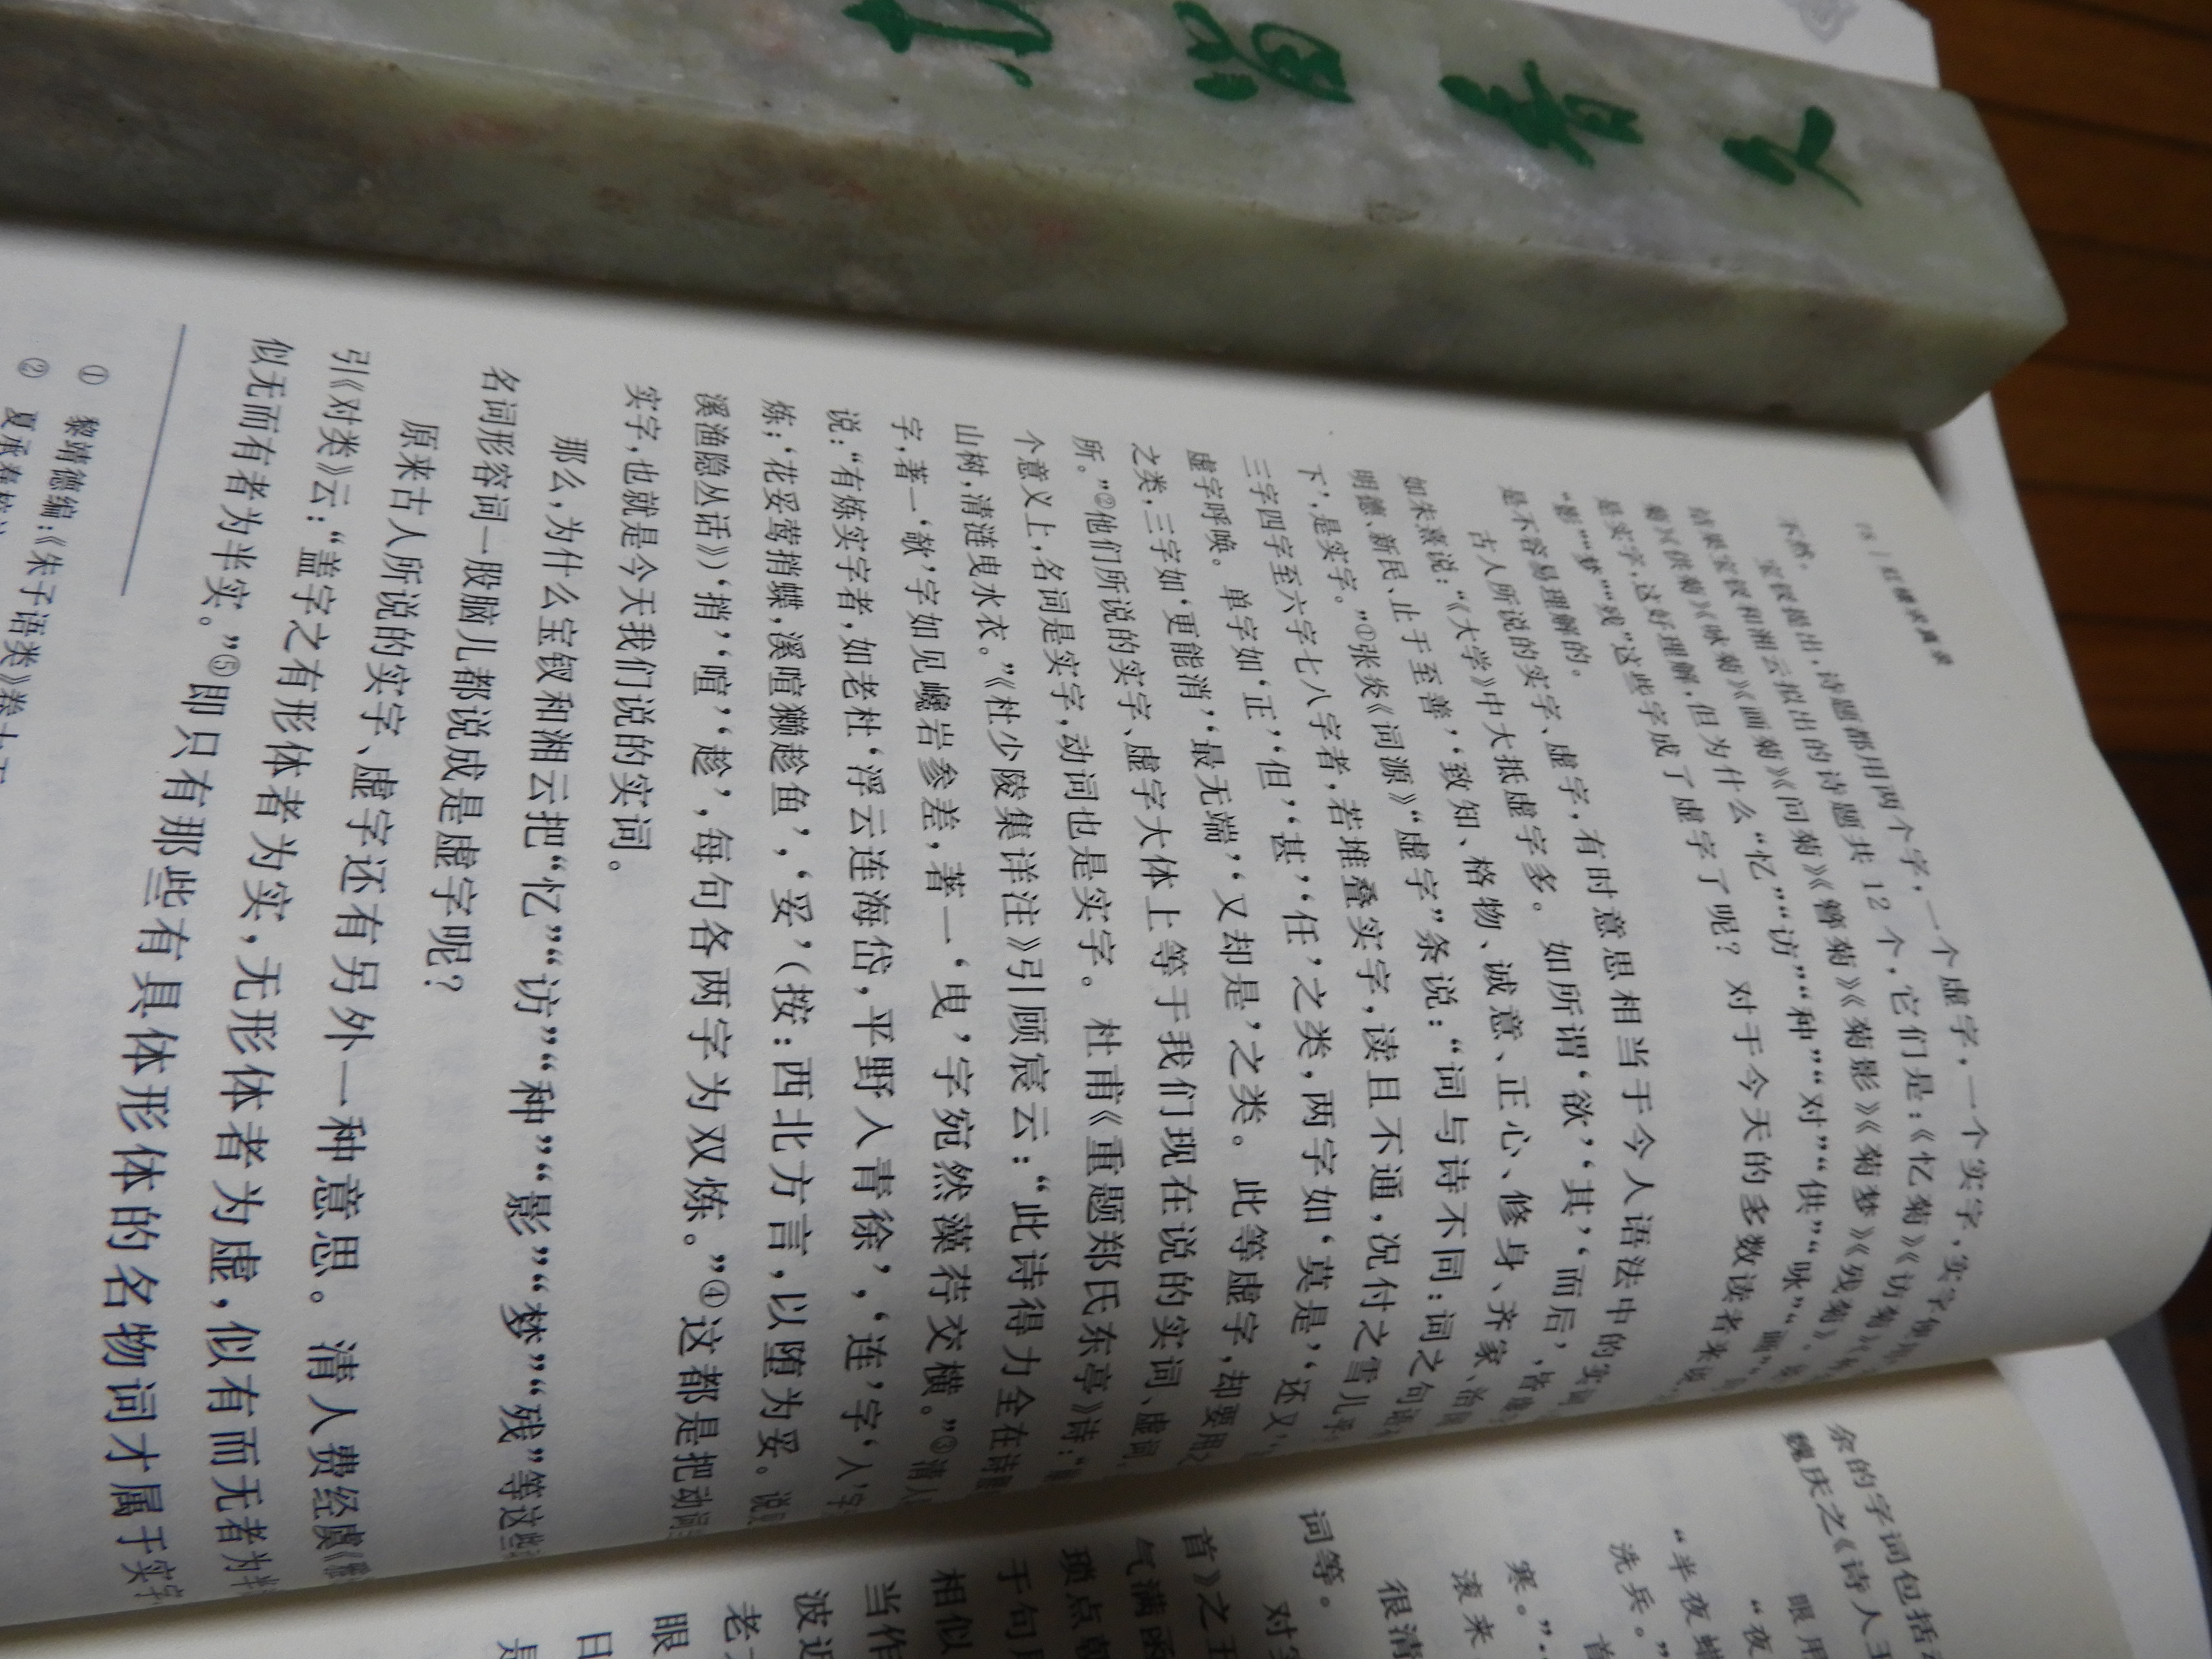 红楼求真录
不然。
宝钗提出，诗题都用两个字，一个虚字，一个实字，实字便
结果宝钗和湘云拟出的诗题共12个，它们是：《忆菊》《访菊》
菊》《供菊》《咏菊》《画菊》《问菊》《簪菊》《菊影》《菊梦》《残菊》。
是实字，这好理解，但为什么“忆”“访”“种”“对”“供”“咏”“画”
“影”“梦”“残”这些字成了虚字了呢？对于今天的多数读者来说，
是不容易理解的。
古人所说的实字、虚字，有时意思相当于今人语法中的实词
如朱熹说：“《大学》中大抵虚字多。如所谓‘欲’‘其’‘而后’，皆
明德、新民、止于至善’，‘致知、格物、诚意、正心、修身、齐家、治国
下’，是实字。”①张炎《词源》“虚字”条说：“词与诗不同：词之句语
三字四字至六字七八字者，若堆叠实字，读且不通，况付之雪儿乎
虚字呼唤。单字如‘正’，‘但’，‘甚’，‘任’之类，两字如‘莫是’，‘还又
之类，三字如‘更能消’，‘最无端’，‘又却是’之类。此等虚字，却要用之
所。”②他们所说的实字、虚字大体上等于我们现在说的实词、虚词
个意义上，名词是实字，动词也是实字。杜甫《重题郑氏东亭》诗：“
山树，清涟曳水衣。”《杜少陵集详注》引顾宸云：“此诗得力全在诗
字，著一‘欹’字如见巉岩参差，著一‘曳’字宛然藻荇交横。”③清人
说：“有炼实字者，如老杜‘浮云连海岱，平野入青徐’，‘连’字‘入’字
炼；‘花妥莺捎蝶，溪喧獭趁鱼’，‘妥’（按：西北方言，以堕为妥。说
溪渔隐丛话》）‘捎’，‘喧’，‘趁’，每句各两字为双炼。”④这都是把动词
实字，也就是今天我们说的实词。
那么，为什么宝钗和湘云把“忆”“访”“种”“影”“梦”“残”等这些
名词形容词一股脑儿都说成是虚字呢？
原来古人所说的实字、虚字还有另外一种意思。清人费经虞《
引《对类》云：“盖字之有形体者为实，无形体者为虚，似有而无者为半
似无而有者为半实。”⑤即只有那些有具体形体的名物词才属于实字
① 黎靖德编：《朱子语类》卷十五
② 夏承焘校注
余的字词包括
魏庆之《诗人玉
眼用
“夜
“半夜
首
洗兵。”
寒。”
滚来
很清
词等。
对
首》之五
气满函
琐点朝
于句
相似
当作
波近
老
眼
日
是